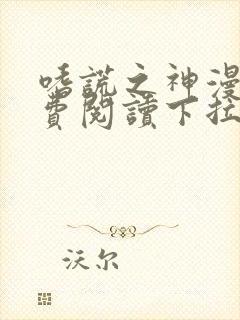 嗜謊之神漫
費閱讀下拉
沃尔